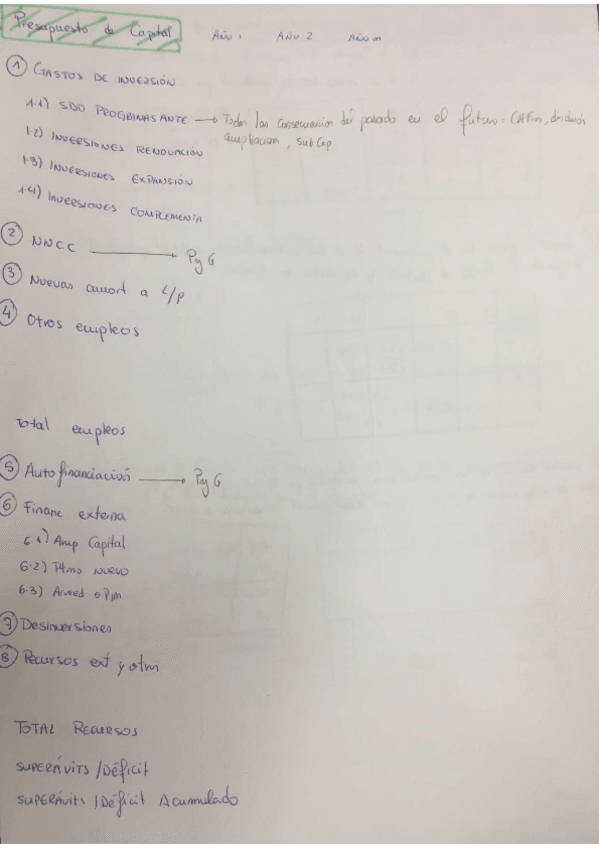 Presupuesto de Capital Año 1 Año 2 Año n
1 GASTOS DE INVERSIÓN
1.1) SDO PROGRAMAS ANTE → Todas las consecuencias del pasado en el futuro:
ampliación, subcap
1.2) INVERSIONES RENOVACIÓN
1.3) INVERSIONES EXPANSIÓN
1.4) INVERSIONES COMPLEMENTA
2 NNCC → PyG
3 Nuevas amort a L/P
4 Otros empleos
Total empleos
5 Autofinanciación → PyG
6 Financ externa
6.1) Amp Capital
6.2) Ptmo NUEVO
6.3) Acreed
7 Desinversiones
8 Recursos ext y otrn
TOTAL RECURSOS
SUPERÁVITS / Déficit
SUPERÁVITS / Déficit Acumulado